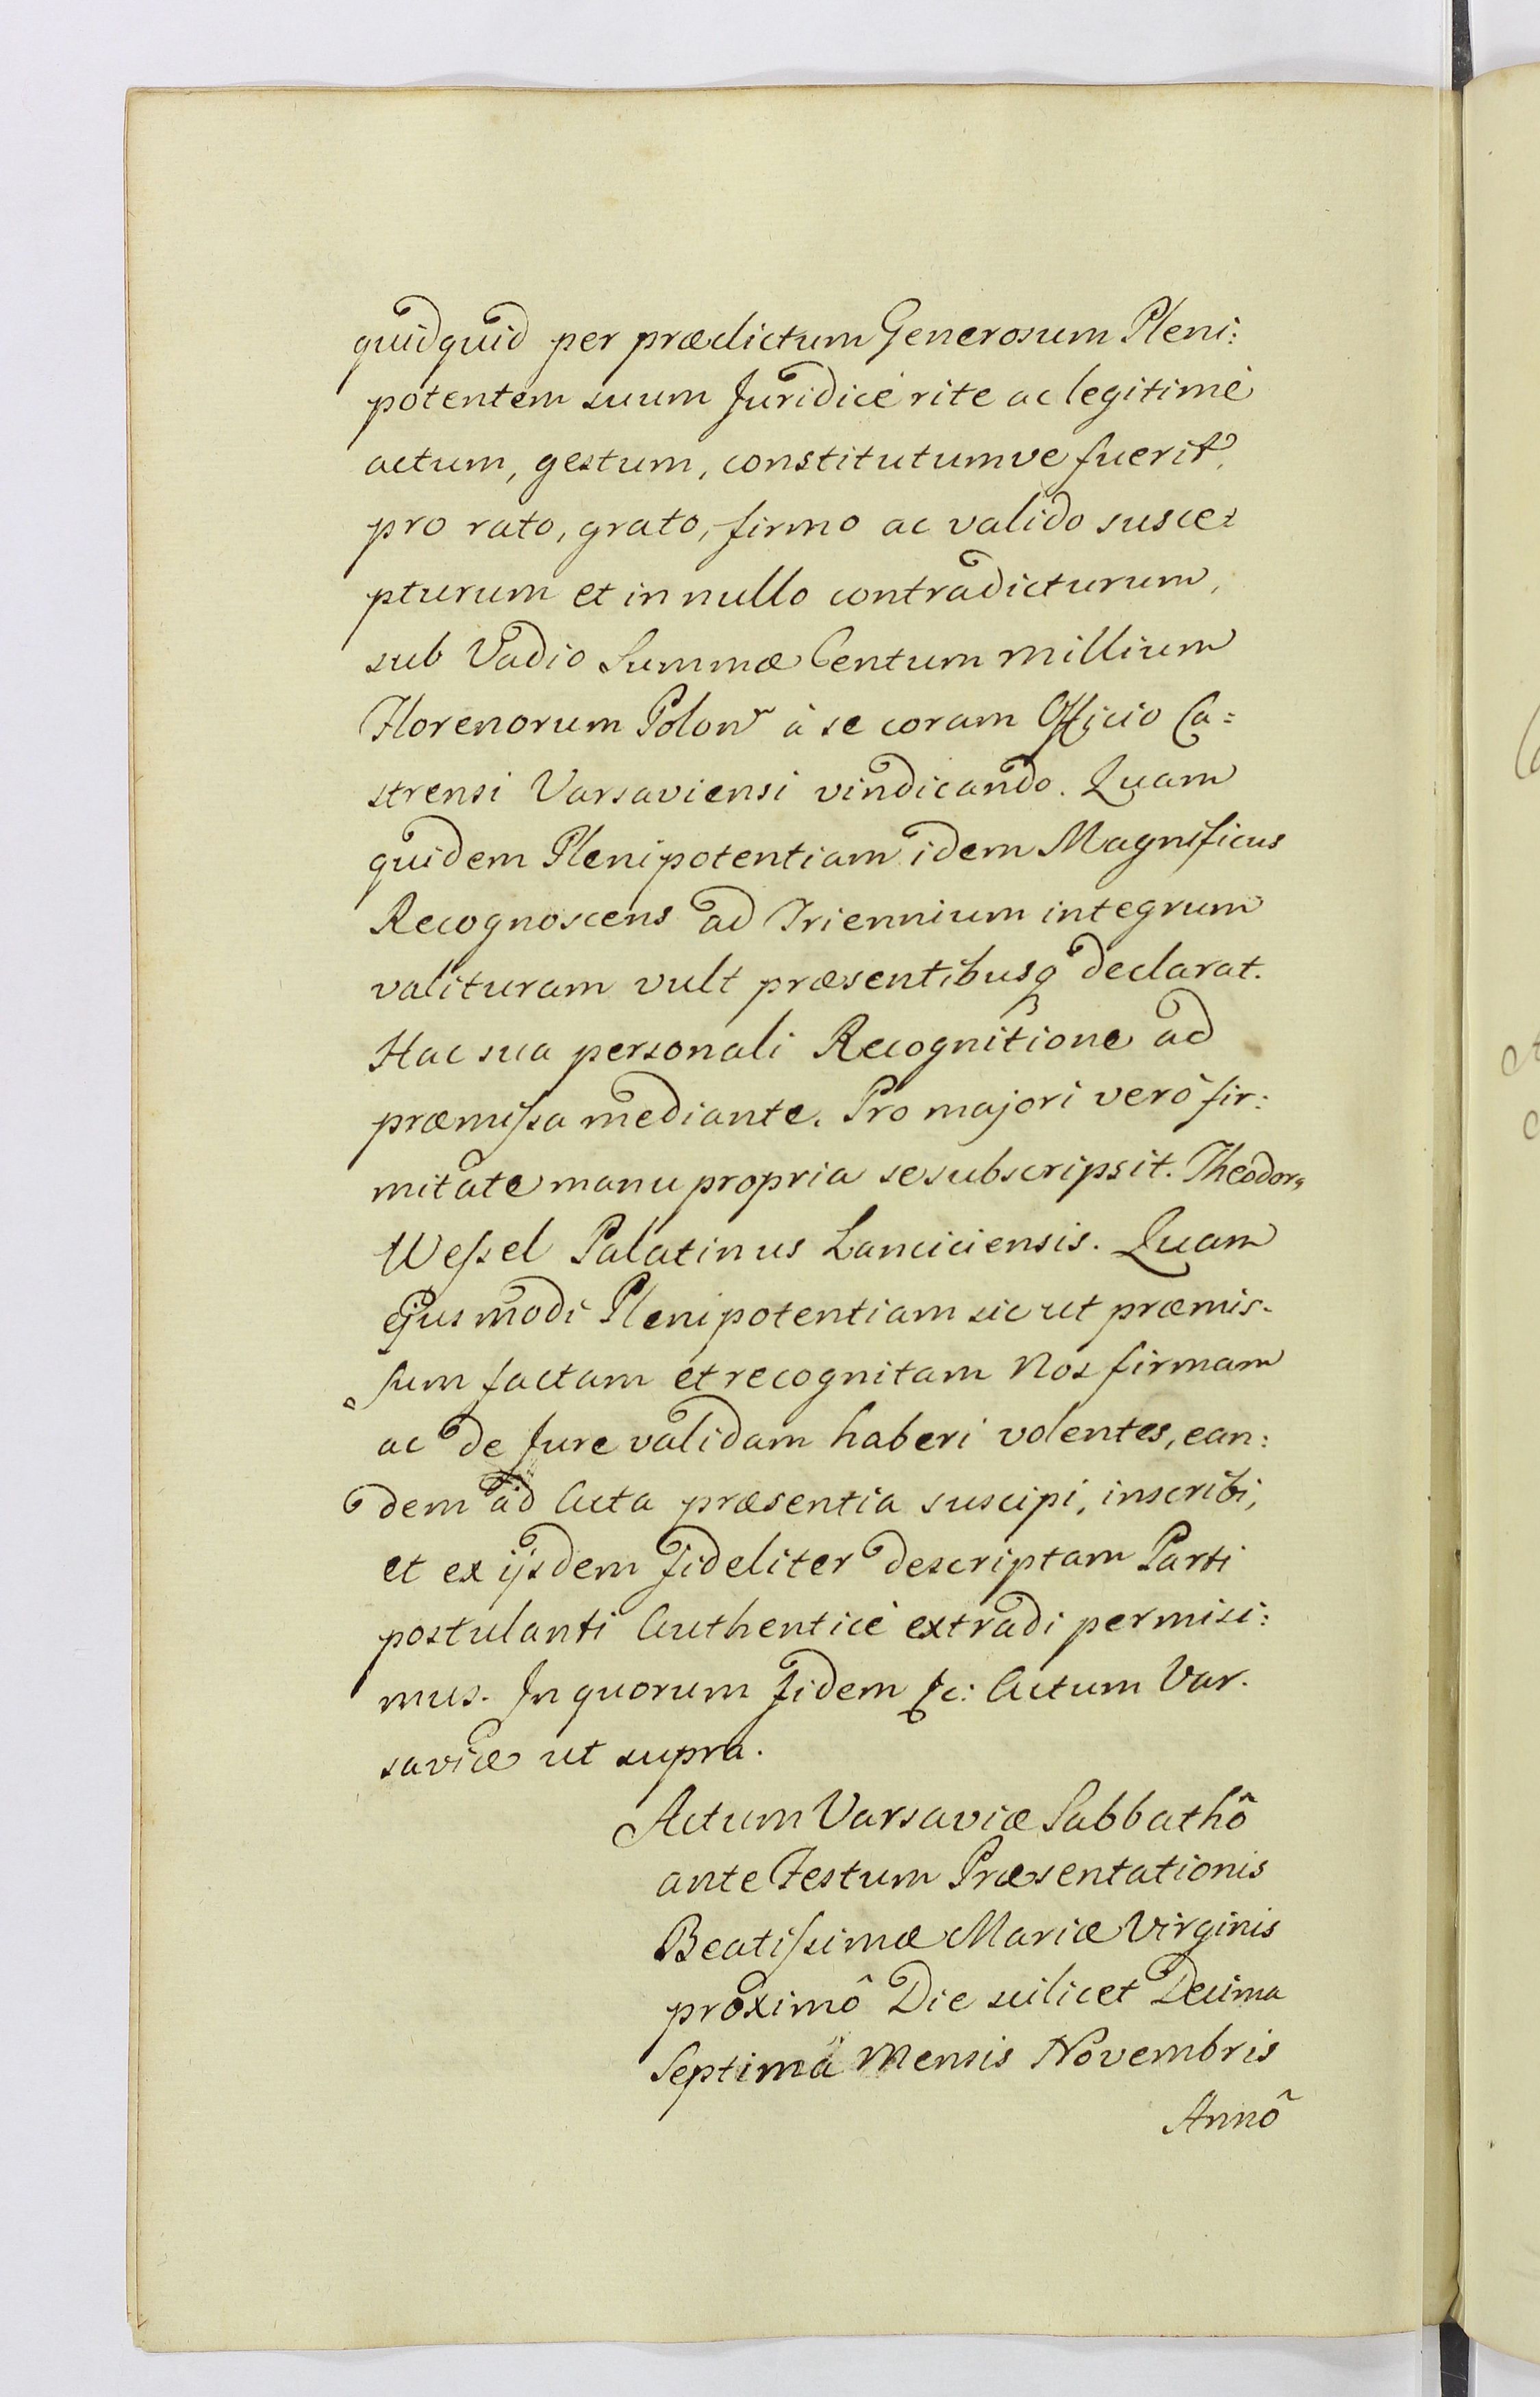 quidquid per prædictum Generosum Pleni:
potentem suum Juridicè rite ac legitimè
actum, gestum, constitutumve fuerit,
pro rato, grato, firmo ac valido susce:
pturum et in nullo contradicturum,
sub Vadio Summæ Centum millium
Florenorum Polon à se coram Officio Ca:
strensi Varsaviensi vindicando. Quam
quidem Plenipotentiam idem Magnificus
Recognoscens ad Triennium integrum
valituram vult præsentibusq declarat.
Hac sua personali Recognitione ad
præmiſsa mediante. Pro majori verò fir:
mitate manu propria se subscripsit. Theodorꝰ
Weſsel Palatinus Lanciciensis. Quam
ejusmodi Plenipotentiam sic ut præmis-
sum factam et recognitam Nos firmam
ac de Jure validam haberi volentes, ean:
dem ad Acta præsentia suscipi, inscribi,
et ex ijsdem fideliter descriptam Parti
postulanti Authenticè extradi permisi:
mus. In quorum fidem &c: Actum Var-
saviæ ut supra.
Actum Varsaviæ Sabbathô
ante Festum Præsentationis
Beatiſsimæ Mariæ Virginis
proximô Die scilicet Decima
Septimâ Mensis Novembris
Annô